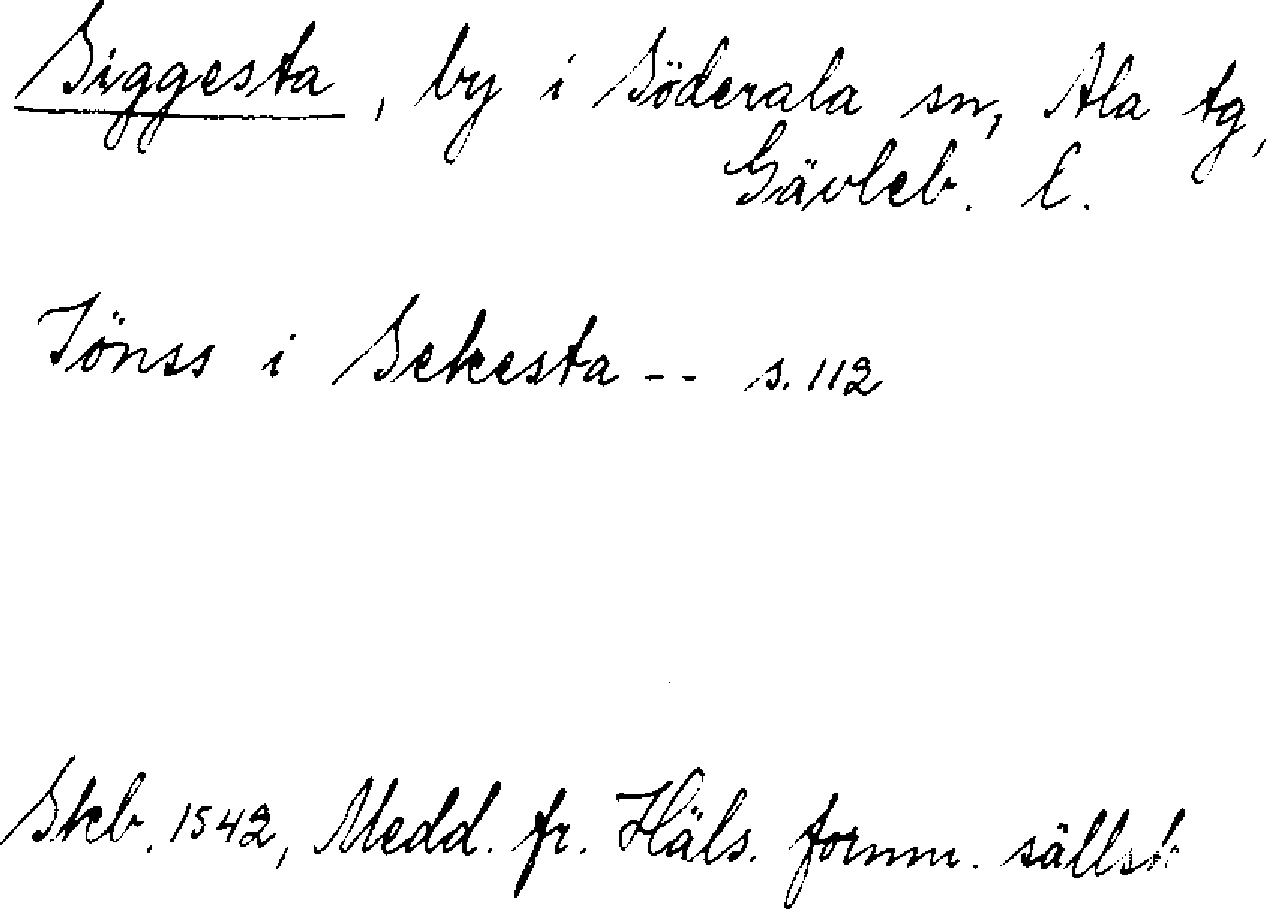 Siggesta, by i Söderala sn, Ala tg,
Gävleb. l.
Jönss i Sekesta -- s. 112
Skb. 1542, Medd. fr. Häls. fornm. sällsk